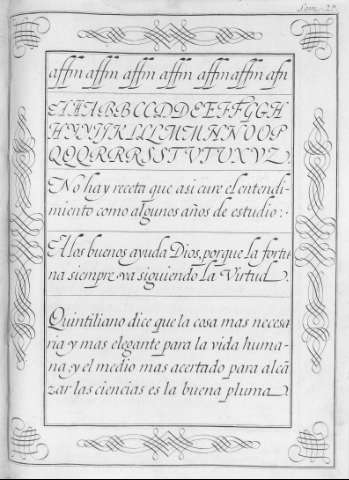 affin affin affin affin affin affin afi
A A A B B C C D D E E F F G G H
H Y Y Y J K L L L M M H N V O P
Q Q Q R R R S S T V T U X V Z.
No hay receta que asi cure el entendi-
miento como algunos años de estudio:
A los buenos ayuda Dios, porque la fortu
na siempre va siguiendo la Virtud.
Quintiliano dice que la cosa mas necesa
ria y mas elegante para la vida huma-
na; y el medio mas acertado para alcã
zar las ciencias es la buena pluma.